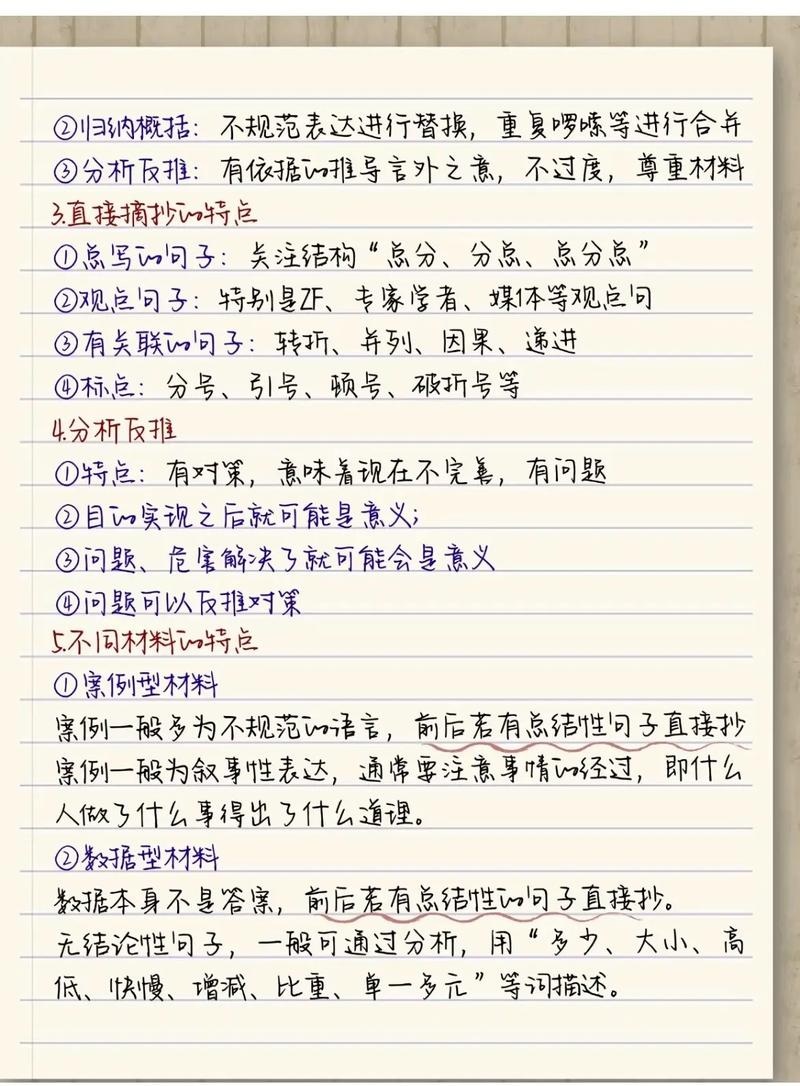 ②归纳概括：不规范表达进行替换，重复啰嗦等进行合并
③分析反推：有依据的推导言外之意，不过度，尊重材料
3.直接摘抄的特点
①总写的句子：关注结构“总分、分总、总分总”
②观点句子：特别是ZF、专家学者、媒体等观点问
③有关联的句子：转折、并列、因果、递进
④标点：分号、引号、顿号、破折号等
4.分析反推
①特点：有对策，意味着现在不完善，有问题
②目的实现之后就可能是意义；
③问题、危害解决了就可能会是意义
④问题可以反推对策
5.不同材料的特点
①案例型材料
案例一般多为不规范的语言，前后若有总结性句子直接抄
案例一般为叙事性表达，通常要注意事情的经过，即什么
人做了什么事得出了什么道理。
②数据型材料
数据本身不是答案，前后若有总结性的句子直接抄。
无结论性句子，一般可通过分析，用“多少、大小、高
低、快慢、增减、比重、单一多元”等词描述。